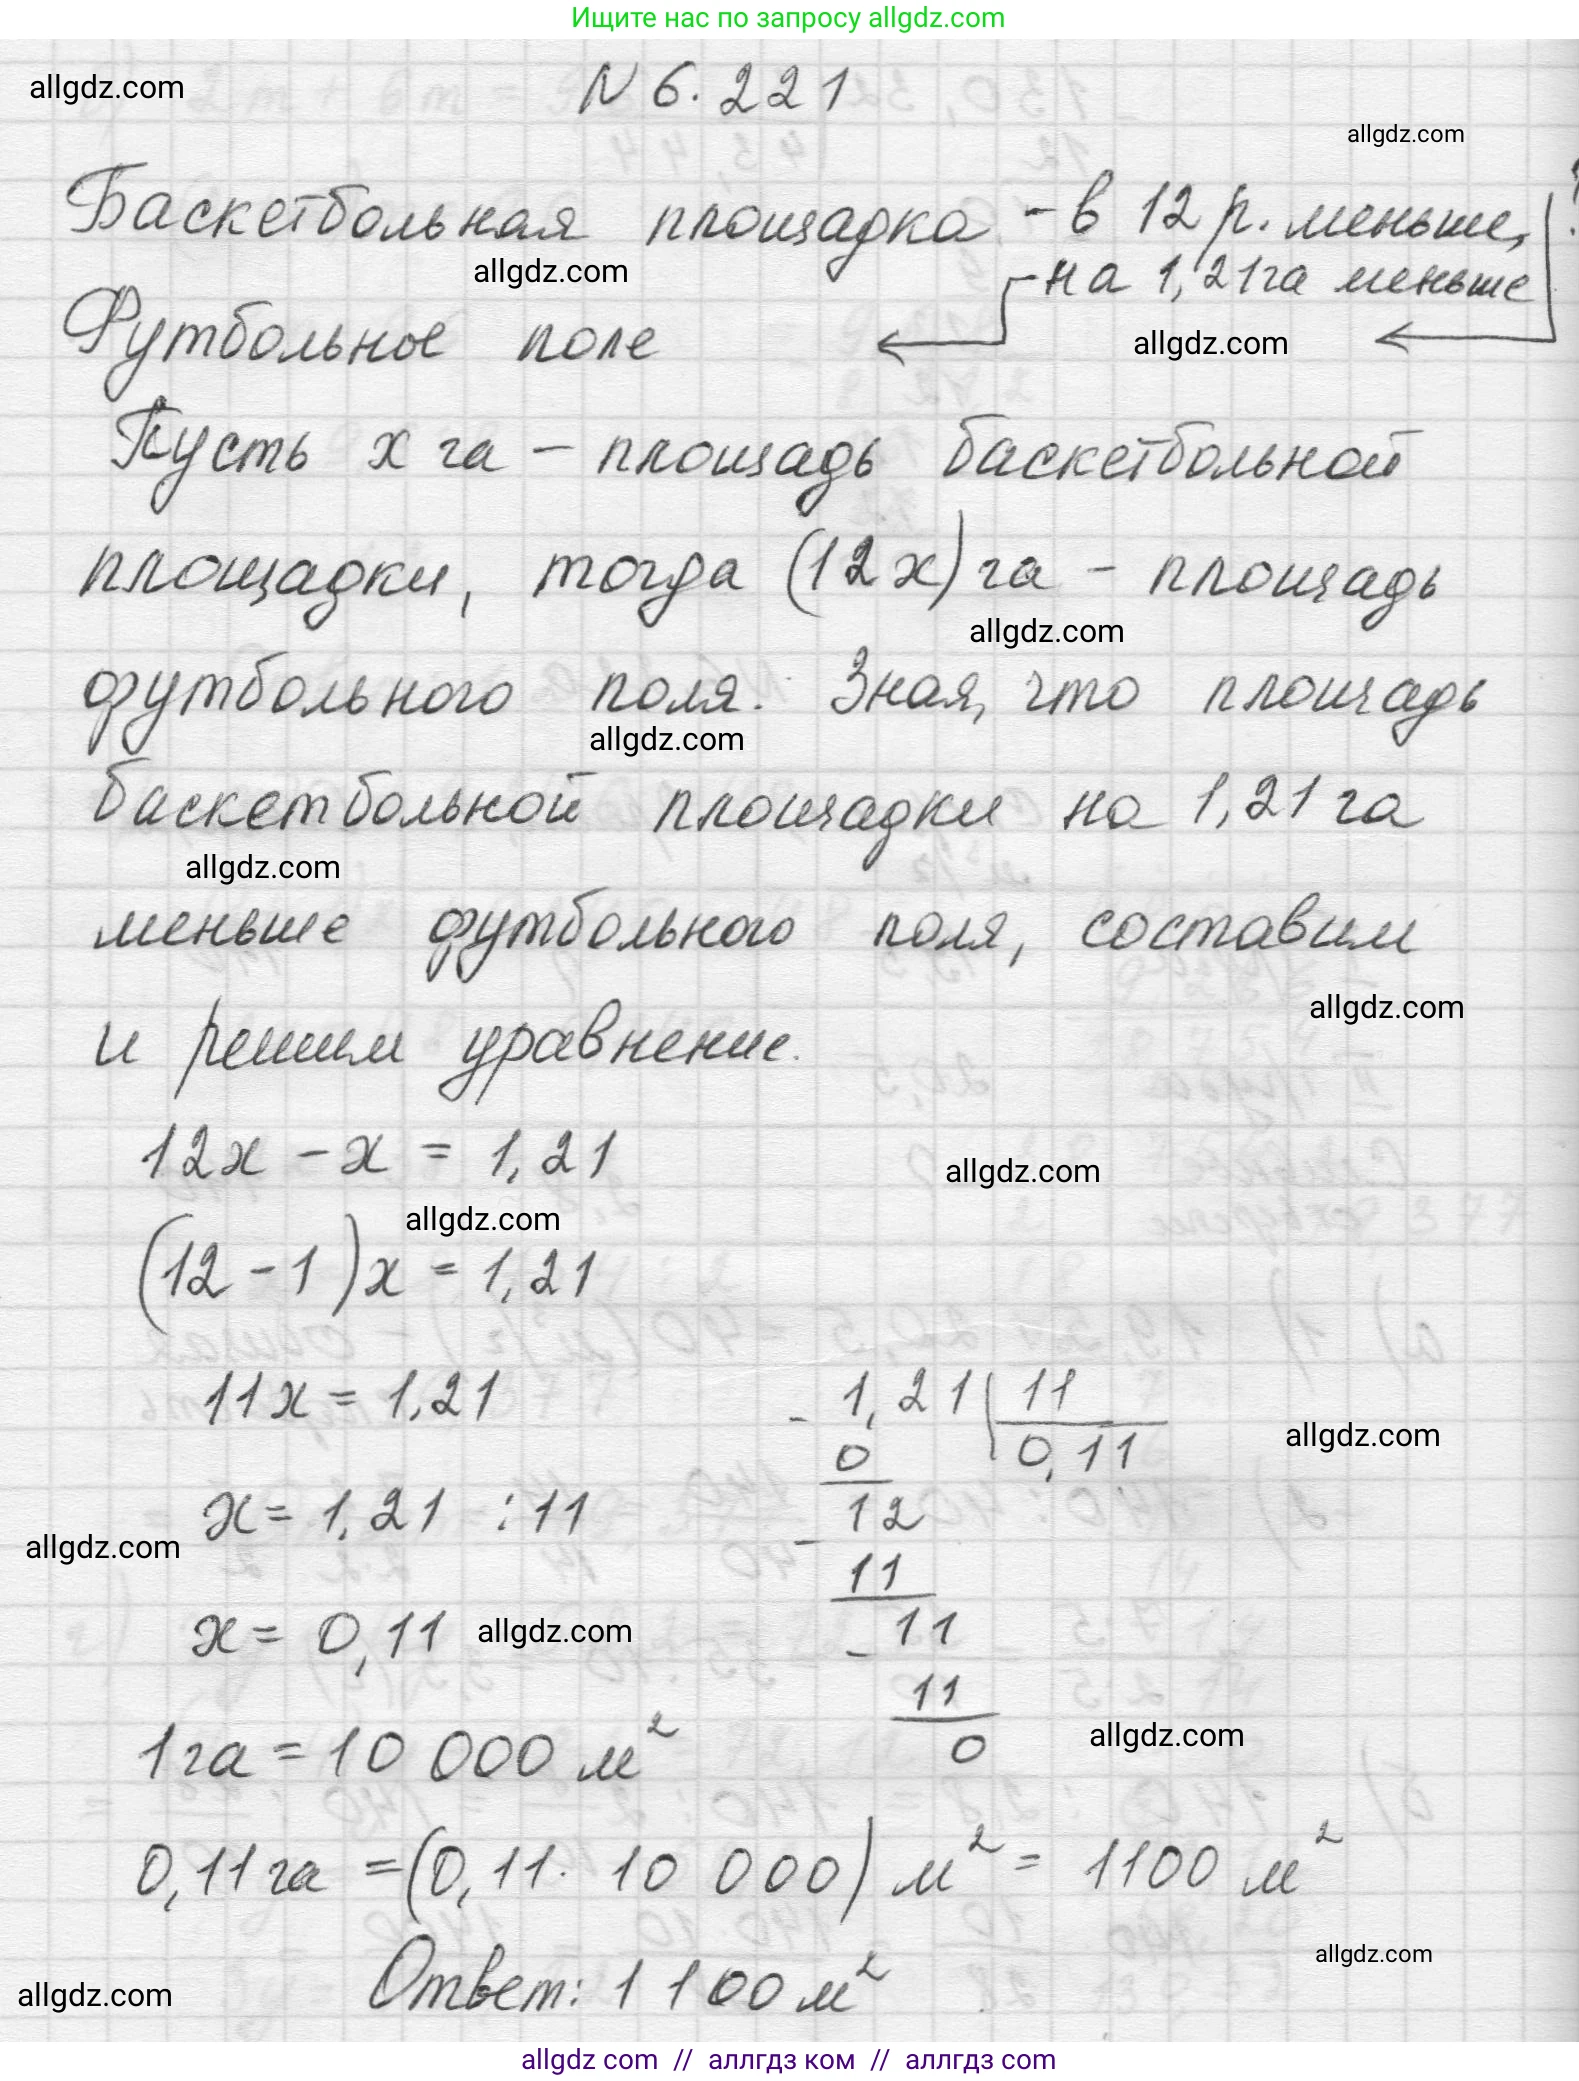 Ищите нас по запросу allgdz.com
N 6.221
allgdz.com
allgdz.com
Баскетбольная площадка - в 12 р. меньше, ?
allgdz.com
- на 1,21 га меньше
Футбольное поле
allgdz.com
Пусть x га - площадь баскетбольной
площадки, тогда (12x) га - площадь
allgdz.com
футбольного поля. Зная, что площадь
allgdz.com
баскетбольной площадки на 1,21 га
allgdz.com
меньше футбольного поля, составим
allgdz.com
и решим уравнение.
12x - x = 1,21
allgdz.com
allgdz.com
(12 - 1)x = 1,21
11x = 1,21
1,21 | 11
- 0
0,11
allgdz.com
x = 1,21 : 11
12
-
allgdz.com
11
x = 0,11
allgdz.com
- 11
11
0
allgdz.com
1 га = 10 000 м²
0,11 га = (0,11 · 10 000) м² = 1100 м²
allgdz.com
Ответ: 1100 м²
allgdz.com
allgdz com // аллгдз ком // аллгдз com